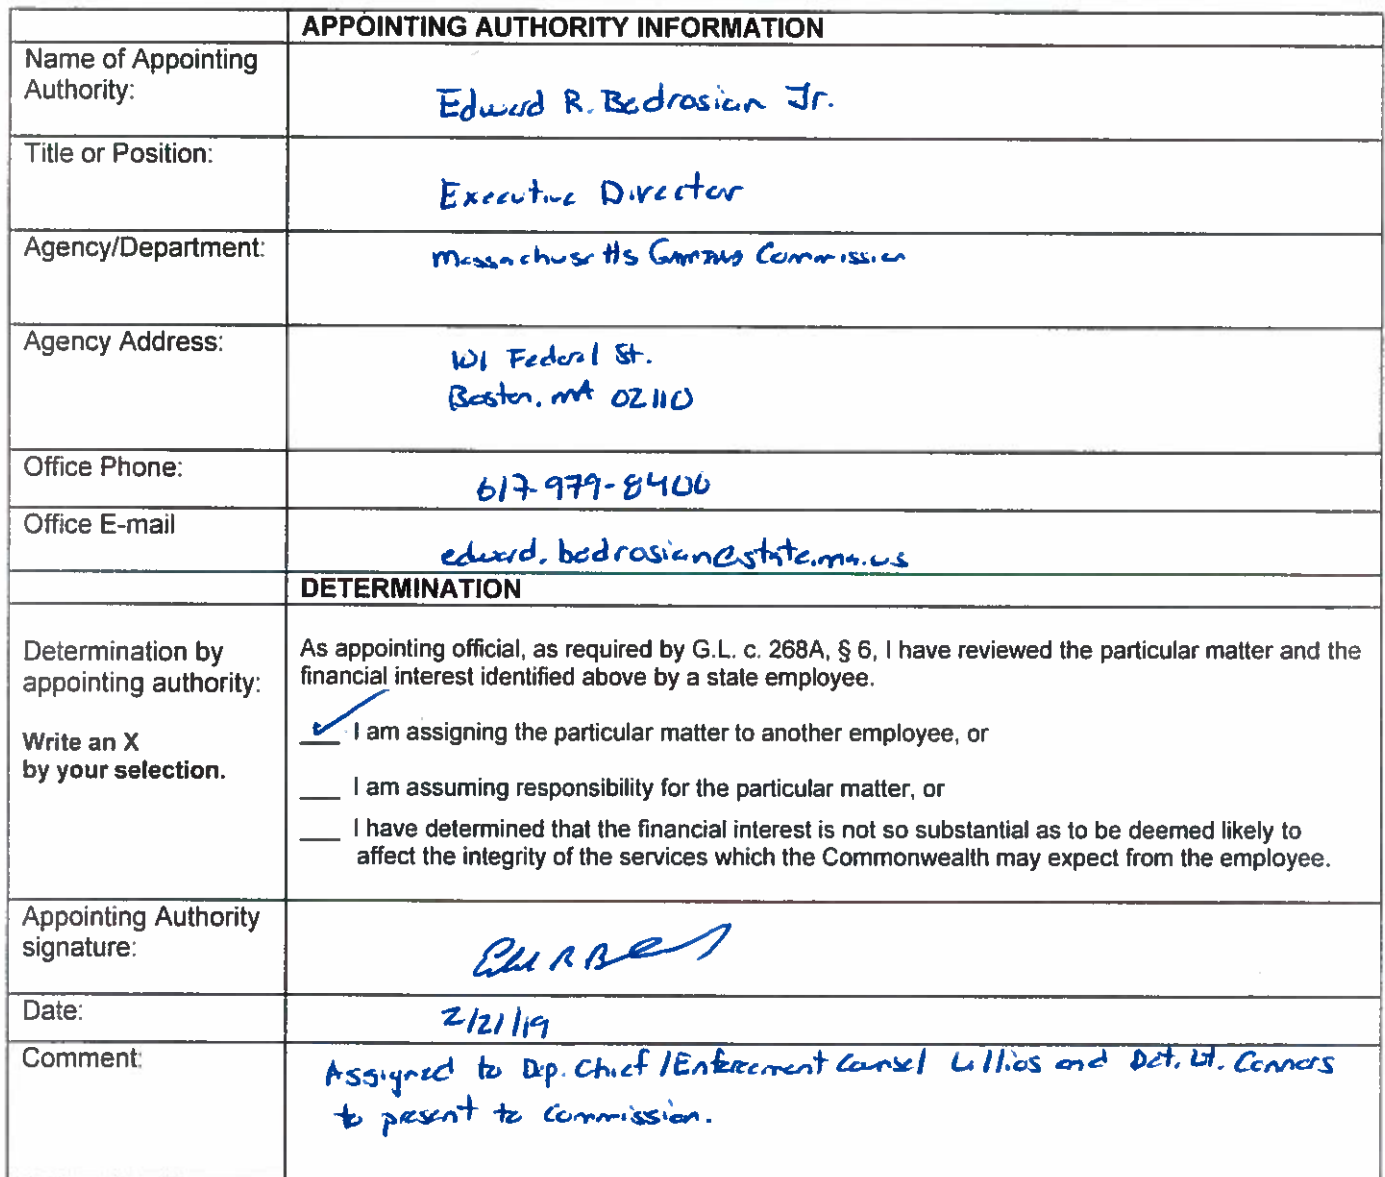 APPOINTING AUTHORITY INFORMATION
Name of Appointing
Authority:
Edward R. Bedrosian Jr.
Title or Position:
Executive Director
Agency/Department:
Massachusetts Gaming Commission
Agency Address:
101 Federal St.
Boston, MA 02110
Office Phone:
617-979-8400
Office E-mail
edward.bedrosian@state.ma.us
DETERMINATION
Determination by
appointing authority:
Write an X
by your selection.
As appointing official, as required by G.L. c. 268A, § 6, I have reviewed the particular matter and the
financial interest identified above by a state employee.
✓ I am assigning the particular matter to another employee, or
___ I am assuming responsibility for the particular matter, or
___ I have determined that the financial interest is not so substantial as to be deemed likely to
affect the integrity of the services which the Commonwealth may expect from the employee.
Appointing Authority
signature:
Date:
2/21/19
Comment:
Assigned to Dep. Chief / Enforcement Counsel Lillios and Det. Lt. Connors
to present to Commission.